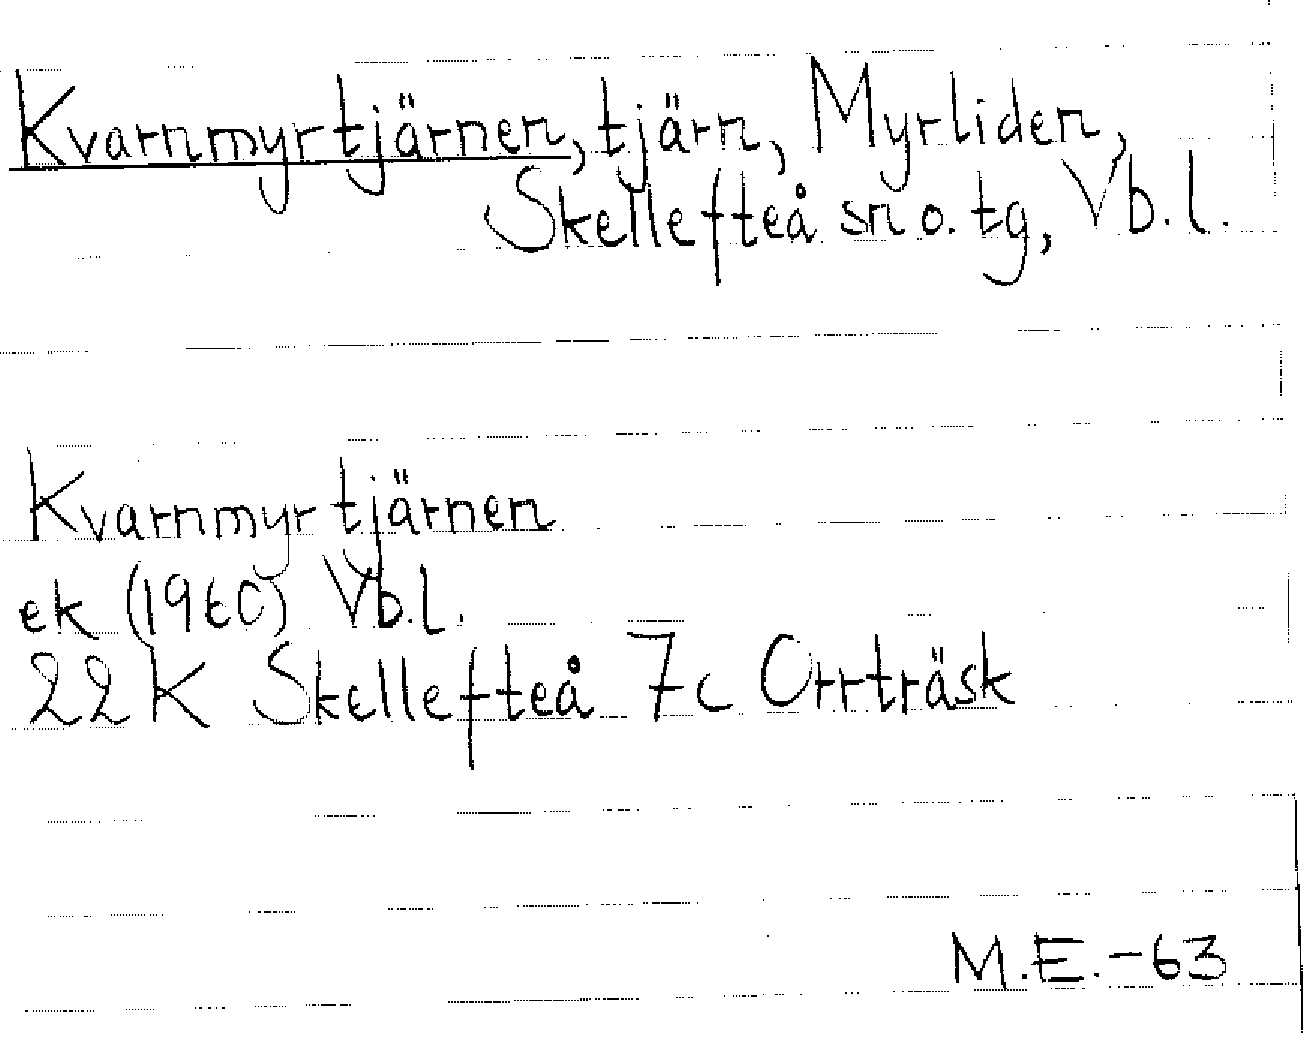 Kvarnmyrtjärnen, tjärn, Myrliden,
Skellefteå sn o. tg, Vb. l.
Kvarnmyrtjärnen
ek (1960) Vb. l.
22 K Skellefteå 7c Orrträsk
M.E.-63